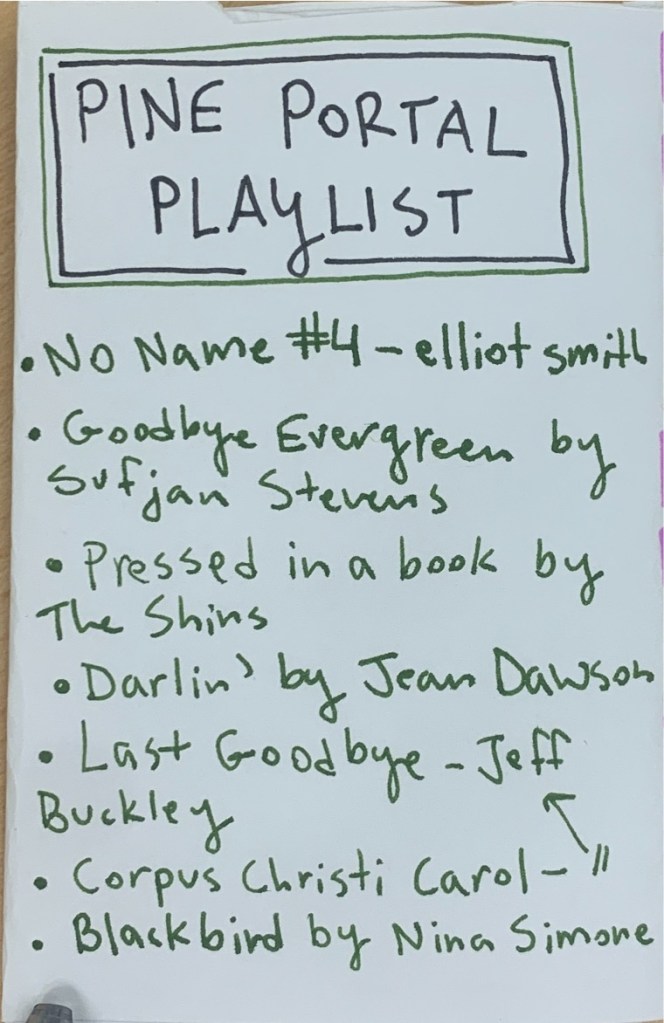 PINE PORTAL
PLAYLIST
• No Name #4 - elliot smith
• Goodbye Evergreen by
Sufjan Stevens
• Pressed in a book by
The Shins
• Darlin' by Jean Dawson
• Last Goodbye - Jeff
Buckley
• Corpus Christi Carol - "
• Blackbird by Nina Simone